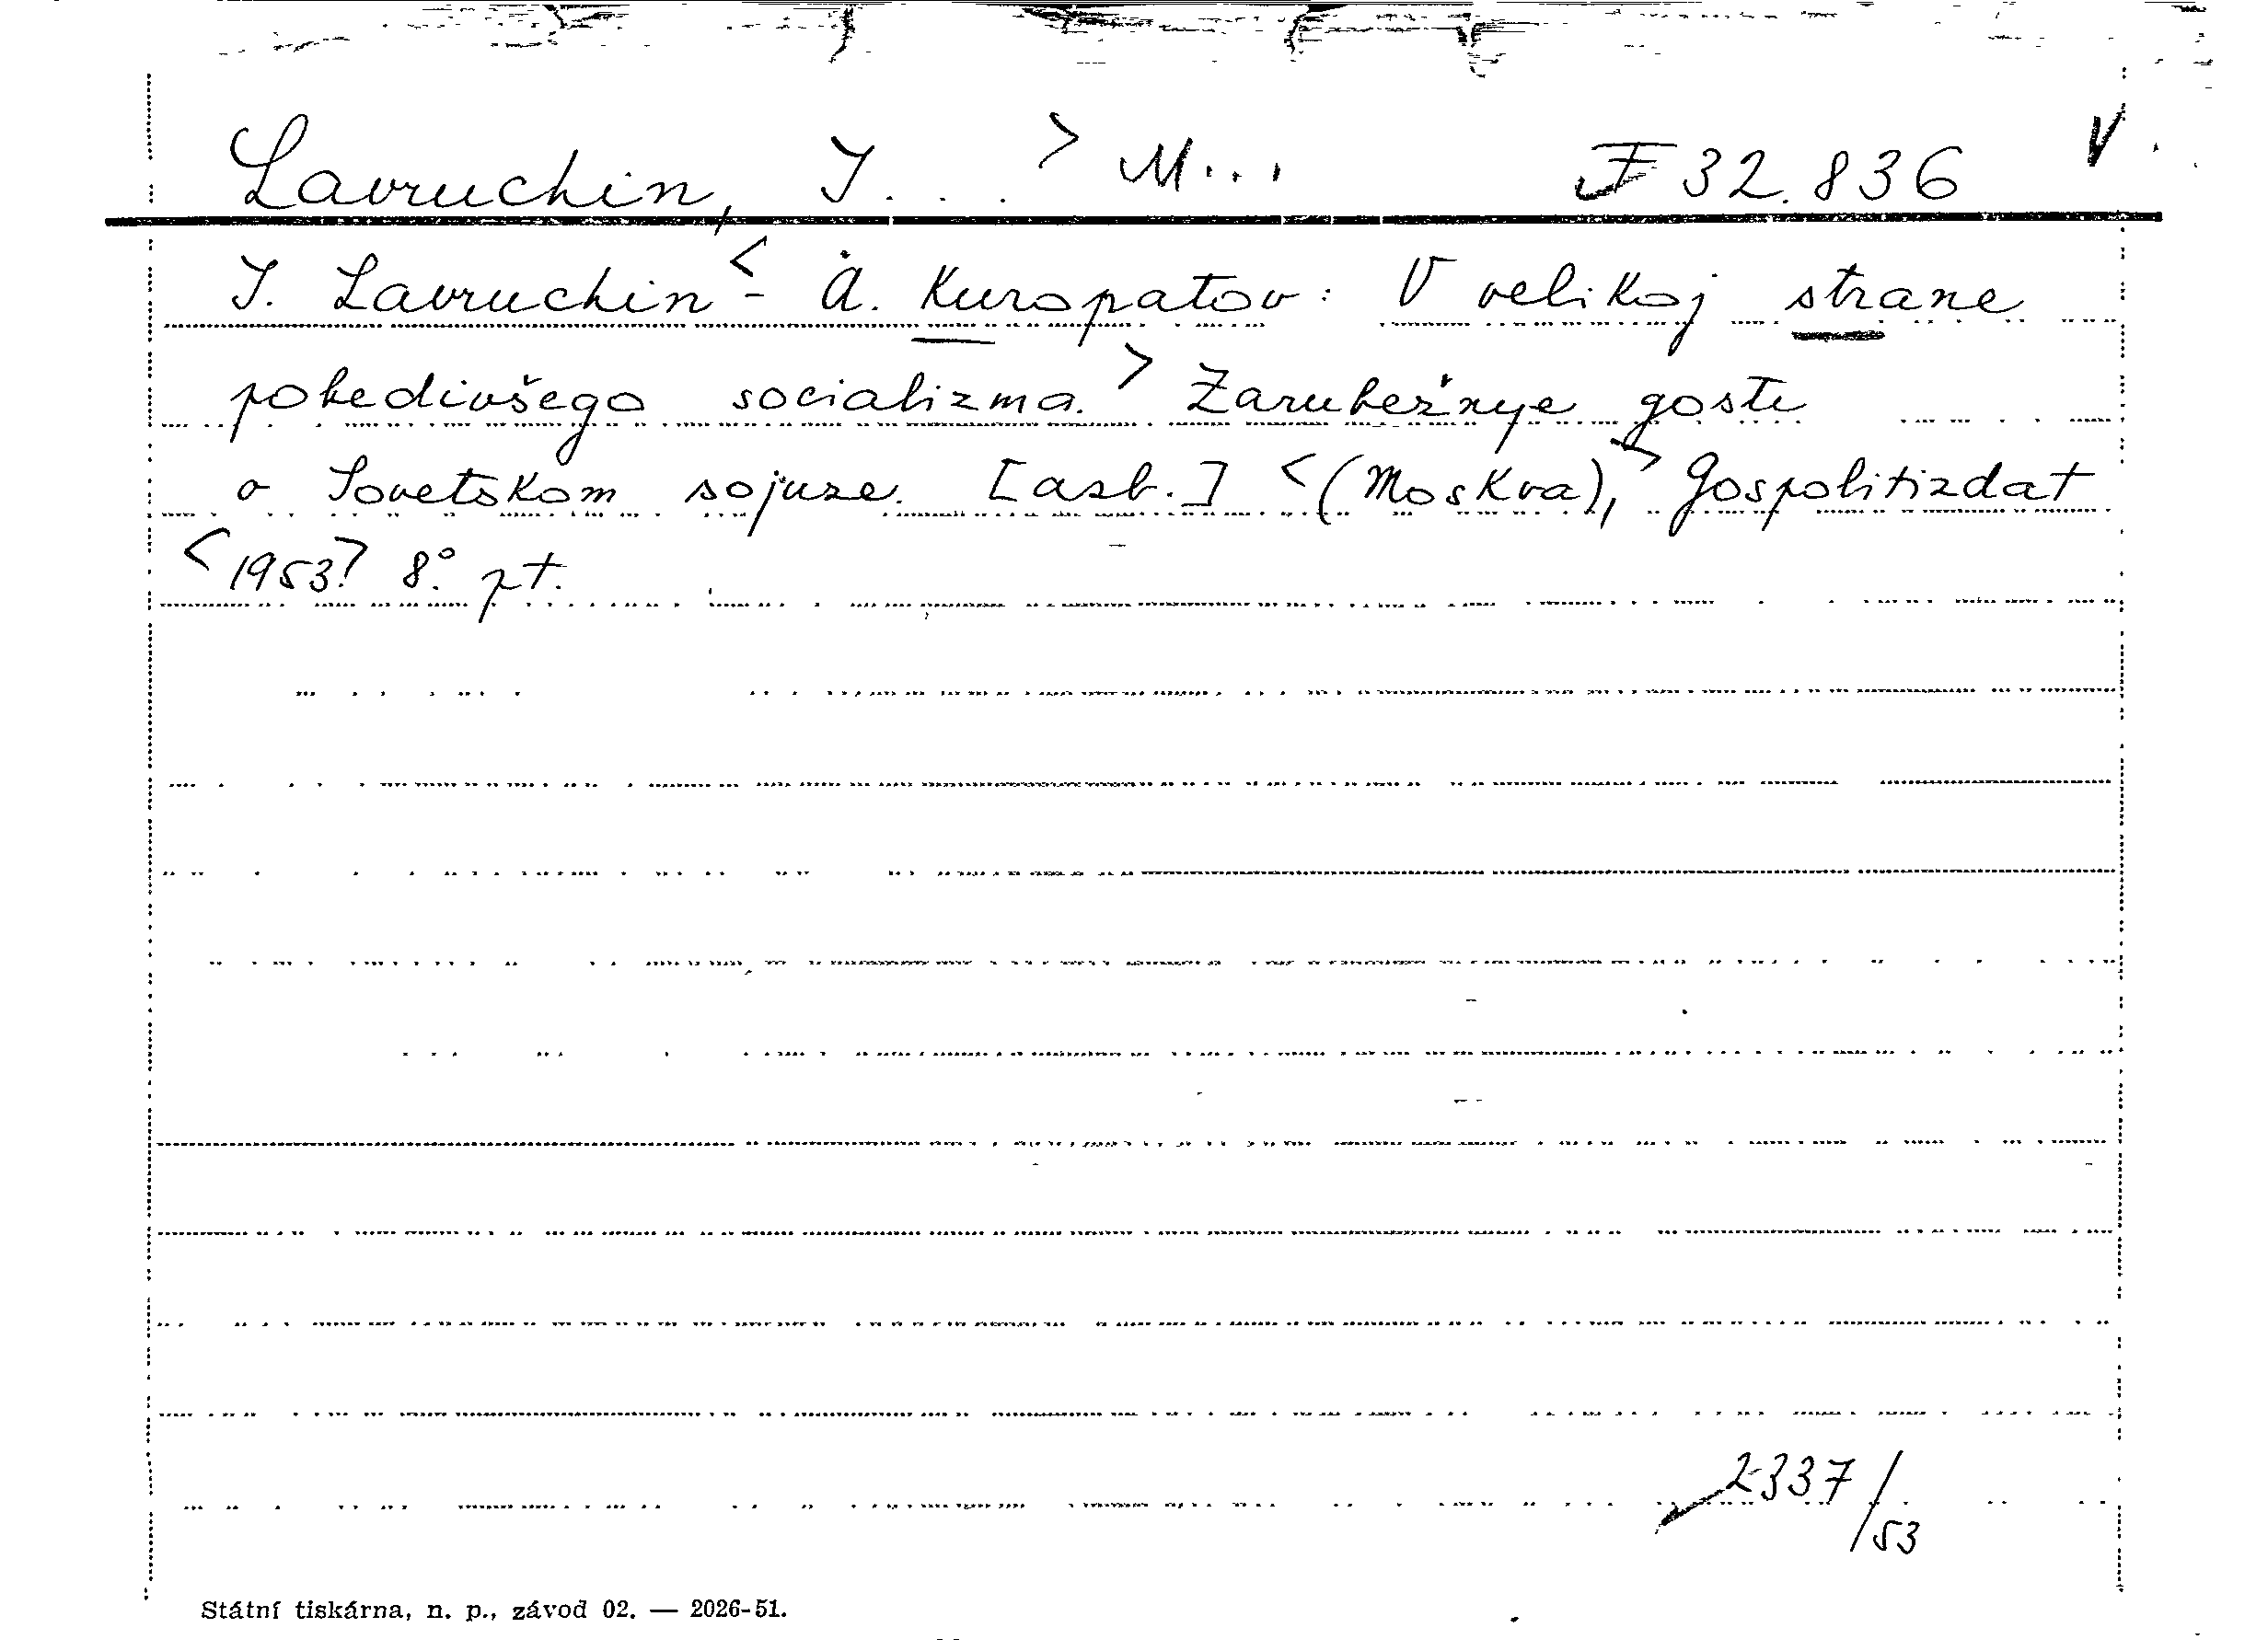 Lavruchin, I... > M... F 32.836 V
I. Lavruchin < - A. Kuropatov: V velikoj strane
pobedivšego socializma. > Zarubežnye gosti
o Sovetskom sojuze. [azb.] < (Moskva), > Gospolitizdat
< 1953? 8°. pt.
2337/53
Státní tiskárna, n. p., závod 02. — 2026-51.